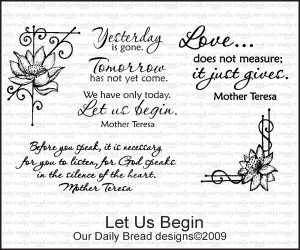 Yesterday
is gone.
Tomorrow
has not yet come.
We have only today.
Let us begin.
Mother Teresa
Love...
does not measure;
it just gives.
Mother Teresa
Before you speak, it is necessary
for you to listen, for God speaks
in the silence of the heart.
Mother Teresa
Let Us Begin
Our Daily Bread designs©2009